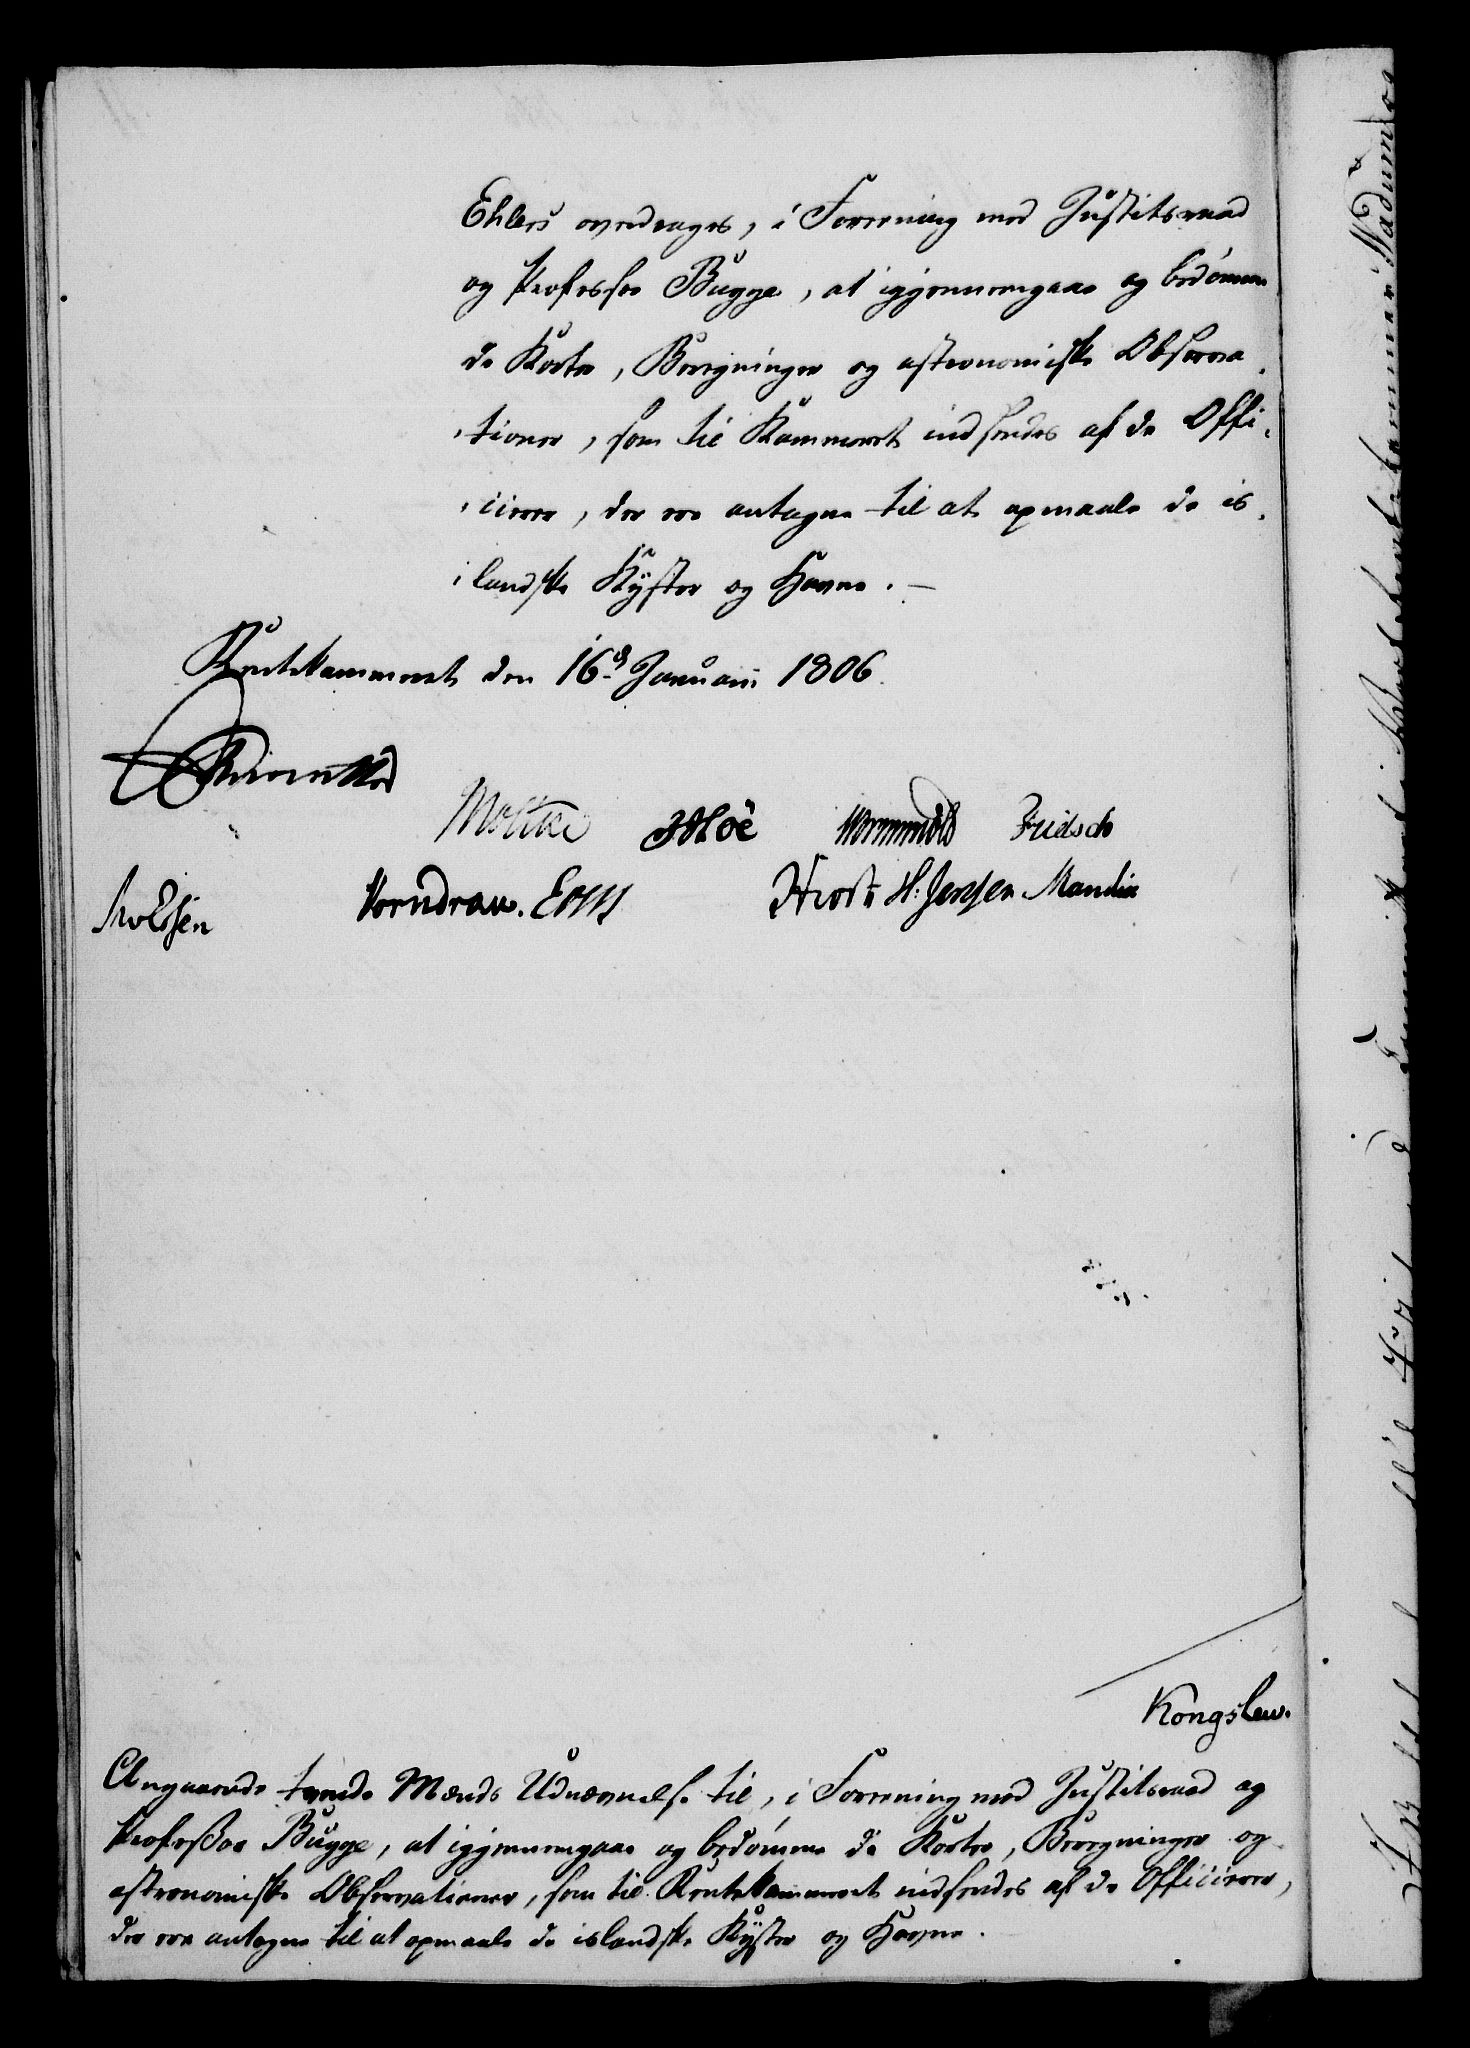 Ehlers overdrages, i Forening med Justitsraad
og Professor Bugge, at igjennemgaae og bedømme
de Korter, Beregninger og astronomiske Observa-
-tioner, som til Kammeret indsendes af de Offi-
-cierer, der ere antagne til at opmaale de is-
-landske Kyster og Havne. —
Rentekammeret den 16de Januarii 1806.
Reventlow
Moltke Wormskiold Fridsch
Knudsen Vorndran. Hiorth H: Jensen Mandix
Kongslew.
Angaaende tvende Mænds Udnævnelse til, i Forening med Justitsraad og
Professor Bugge, at igjennemgaae og bedømme de Korter, Beregninger og
astronomiske Observationer, som til Rentekammeret indsendes af de Officierer,
der ere antagne til at opmaale de islandske Kyster og Havne.